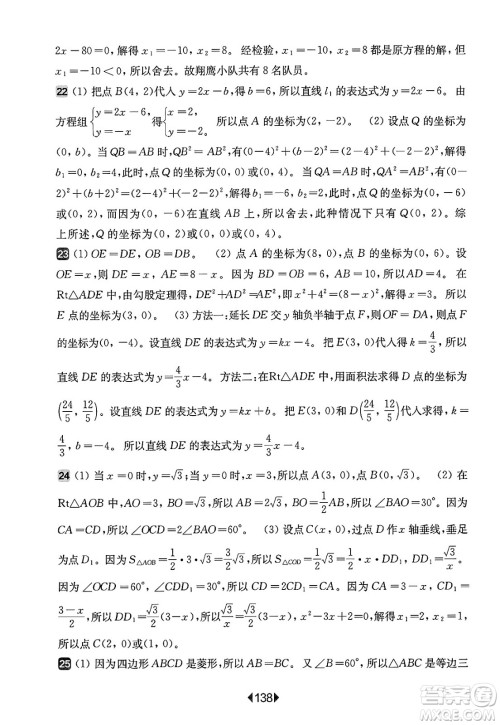 2x－80＝0，解得 x₁＝－10，x₂＝8。 经检验，x₁＝－10，x₂＝8 都是原方程的解，但
x₁＝－10＜0，所以舍去。故翔鹰小队共有 8 名队员。
22 (1) 把点 B(4，2)代入 y＝2x－b，得 b＝6，所以直线 l₁ 的表达式为 y＝2x－6。由
方程组{y＝2x－6，y＝－x 得{x＝2，y＝－2。 所以点 A 的坐标为(2，－2)。 (2) 设点 Q 的坐标为
(0，b)。当 QB＝AB 时，QB²＝AB²，即(0－4)²＋(b－2)²＝(2－4)²＋(－2－2)²，解得
b₁＝0，b₂＝4，所以点 Q 的坐标为(0，0)，(0，4)。当 QA＝AB 时，QA²＝AB²，即(0－
2)²＋(b＋2)²＝(2－4)²＋(－2－2)²，解得 b₁＝2，b₂＝－6，所以 Q(0，2)或(0，－6)
(0，－6)，因为点(0，－6)在直线 AB 上，所以舍去，此种情况下只有 Q(0，2)。综
上所述，Q(0，2)，(0，0)，(0，4)。
23 (1) OE＝DE，OB＝DB。 (2) 点 A 的坐标为(8，0)，点 B 的坐标为(0，6)。设
OE＝x，则 DE＝x，AE＝8－x。因为 AB＝10，BD＝6，所以 AD＝10－6＝4。在
Rt△ADE 中，由勾股定理得，x²＋4²＝(8－x)²，解得 x＝3，所以 OE＝3，所以
E 点的坐标为(3，0)。 (3) 方法一：延长 DE 交 y 轴负半轴于点 F，则 OF＝DA，点 F
的坐标为(0，－4)。设直线 DE 的表达式为 y＝kx－4。把 E(3，0)代入得 k＝4/3，所以
直线 DE 的表达式为 y＝4/3x－4。方法二：在Rt△ADE 中，用面积法求得 D 点坐标为
(24/5，12/5)。设直线 DE 的表达式为 y＝kx＋b。 把 E(3，0)和 D(24/5，12/5)代入求得，k＝
4/3，b＝－4，所以直线 DE 的表达式为 y＝4/3x－4。
24 (1) 当 x＝0 时，y＝√3；当 y＝0 时，x＝3，所以点 A(3，0)，点 B(0，√3)。 (2) 在
Rt△AOB 中，AO＝3，BO＝√3，所以 AB＝2√3，所以∠BAO＝30°。因为
CA＝CD，所以∠OCD＝2∠BAO＝60°。 (3) 设点 C(x，0)，过点 D 作 x 轴垂线，垂足
为点 D₁。因为 S△AOB＝1/2·3·√3，所以 S△COD＝1/2·x·DD₁＝√3/4。 因为 CD＝CA＝
3－x，又因为∠OCD＝2∠BAO＝60°，DD₁⊥CA，所以∠CDD₁＝30°，所以 CD₁＝
(3－x)/2，所以 DD₁＝√3/2(3－x)，所以 1/2·x·√3/2(3－x)＝√3/2，解得 x₁＝1，x₂＝2，所以
点 C(2，0)或 C(1，0)。
25 (1) 因为四边形 ABCD 是菱形，所以 AB＝BC。 又∠B＝60°，所以△ABC 是等边三
138